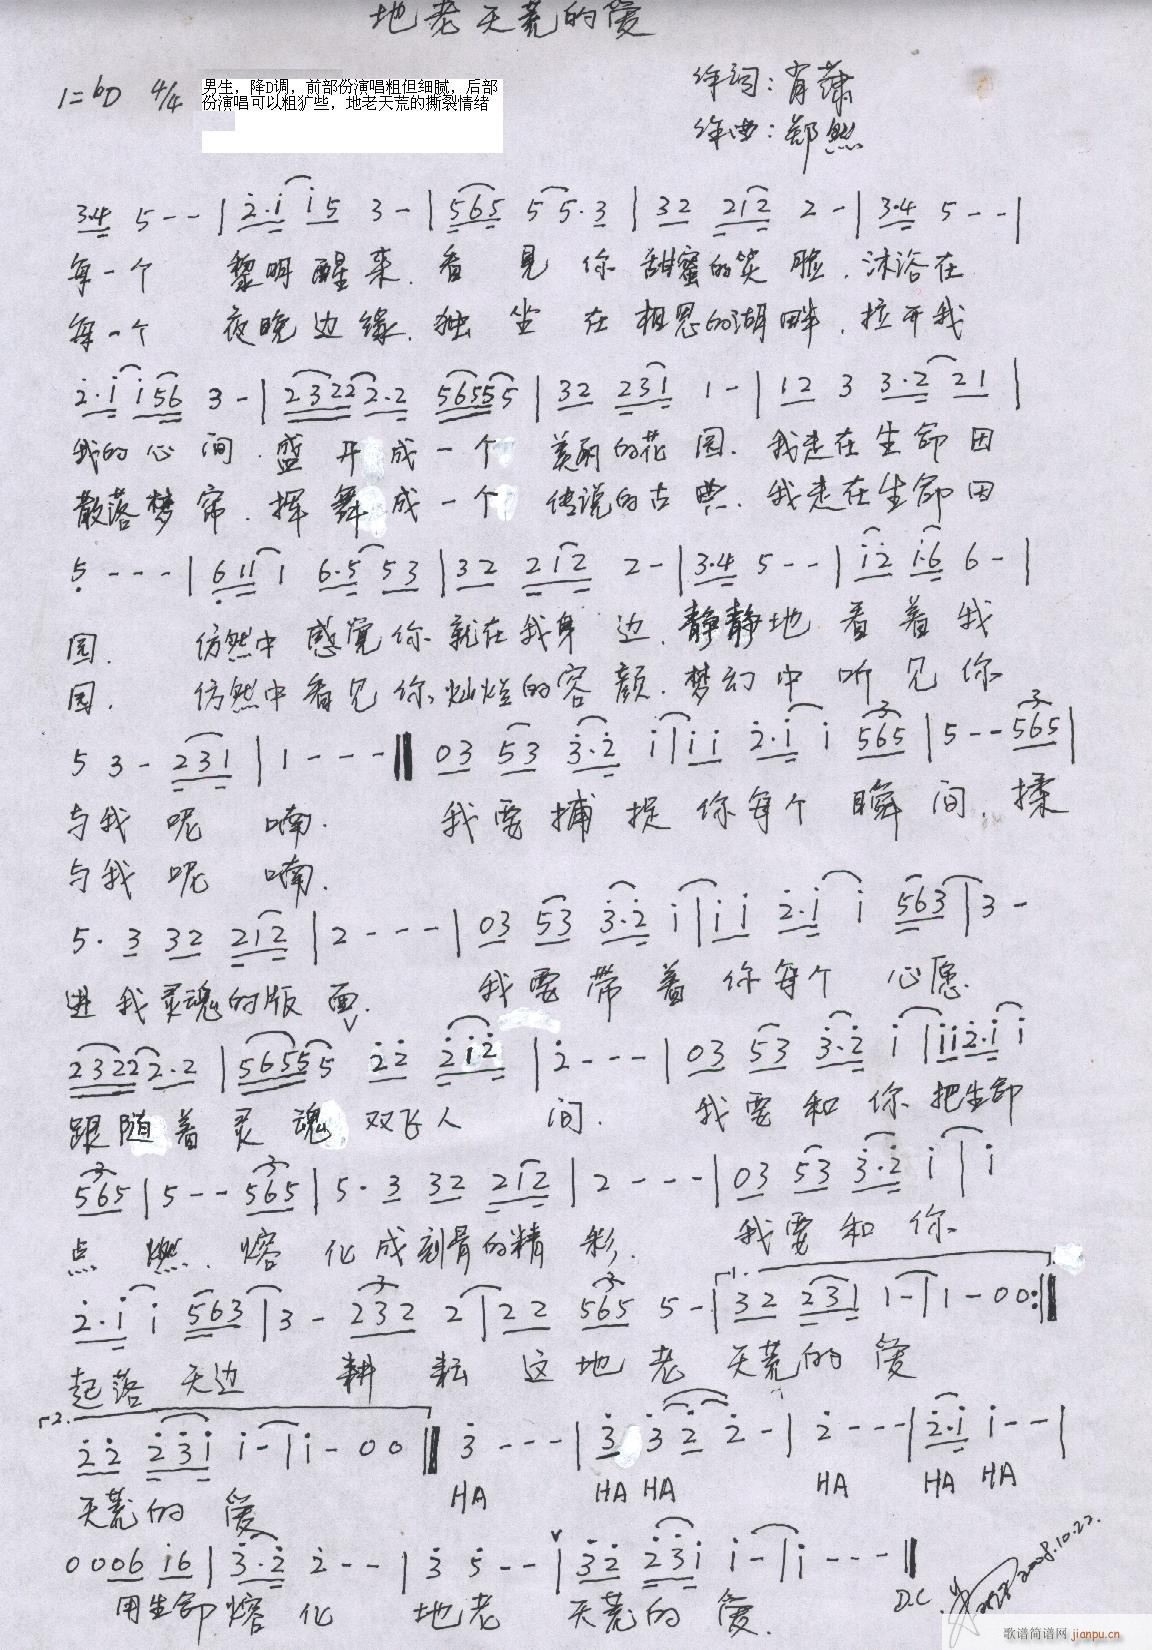 地老天荒的爱
1=bD 4/4
男生，降D调，前部份演唱粗但细腻，后部
份演唱可以粗犷些，地老天荒的撕裂情绪
作词：肖潇
作曲：郑然
3·4 5 - - | 2·1 1 5 3 - | 5 6 5 5 5·3 | 3 2 2 1 2 2 - | 3·4 5 - - |
每一个 黎明醒来.看见你甜蜜的笑脸.沐浴在
每一个 夜晚边缘.独坐在相思的湖畔.拉开我
2·1 1 5 6 3 - | 2 3 2 2 2·2 5 6 5 5 5 | 3 2 2 3 1 1 - | 1 2 3 3·2 2 1 |
我的心间.盛开成一个美丽的花园.我走在生命因
散落梦帘.挥舞成一个传说的古典.我走在生命因
5 - - - | 6 1 1 1 6·5 5 3 | 3 2 2 1 2 2 - | 3·4 5 - - | 1 2 1·6 6 - |
园. 仿然中感觉你就在我身边.静静地看着我
园. 仿然中看见你灿烂的容颜.梦幻中听见你
5 3 - 2 3 1 | 1 - - - || 0 3 5 3 3·2 1 | 1 1 2·1 1 5 6 5 | 5 - - 5 6 5 |
与我呢喃. 我要捕捉你每个瞬间.揉
与我呢喃.
5·3 3 2 2 1 2 | 2 - - - | 0 3 5 3 3·2 1 | 1 1 2·1 1 5 6 3 | 3 -
进我灵魂的版面. 我要带着你每个心愿.
2 3 2 2 2·2 | 5 6 5 5 5 2 2 2 1 2 | 2 - - - | 0 3 5 3 3·2 1 | 1 1 2·1 1
跟随着灵魂双飞人间. 我要和你把生命
5 6 5 | 5 - - 5 6 5 | 5·3 3 2 2 1 2 | 2 - - - | 0 3 5 3 3·2 1 | 1
点燃.熔化成刻骨的精彩. 我要和你
2·1 1 5 6 3 | 3 - 2 3 2 2 | 2 2 5 6 5 5 - | 1. 3 2 2 3 1 1 - | 1 - 0 0 :||
起落天边 耕耘这地老天荒的爱
2. 2 2 2 3 1 1 - | 1 - 0 0 || 3 - - - | 3 3 2 2 - | 2 - - - | 2·1 1 - - |
天荒的爱 HA HA HA HA HA HA
0 0 0 6 1 6 | 3·2 2 - - | 3 5 - - | 3 2 2 3 1 1 - | 1 - - - ||
用生命熔化 地老 天荒的爱.
D.C.
2008.10.22.
歌谱简谱网 jianpu.cn